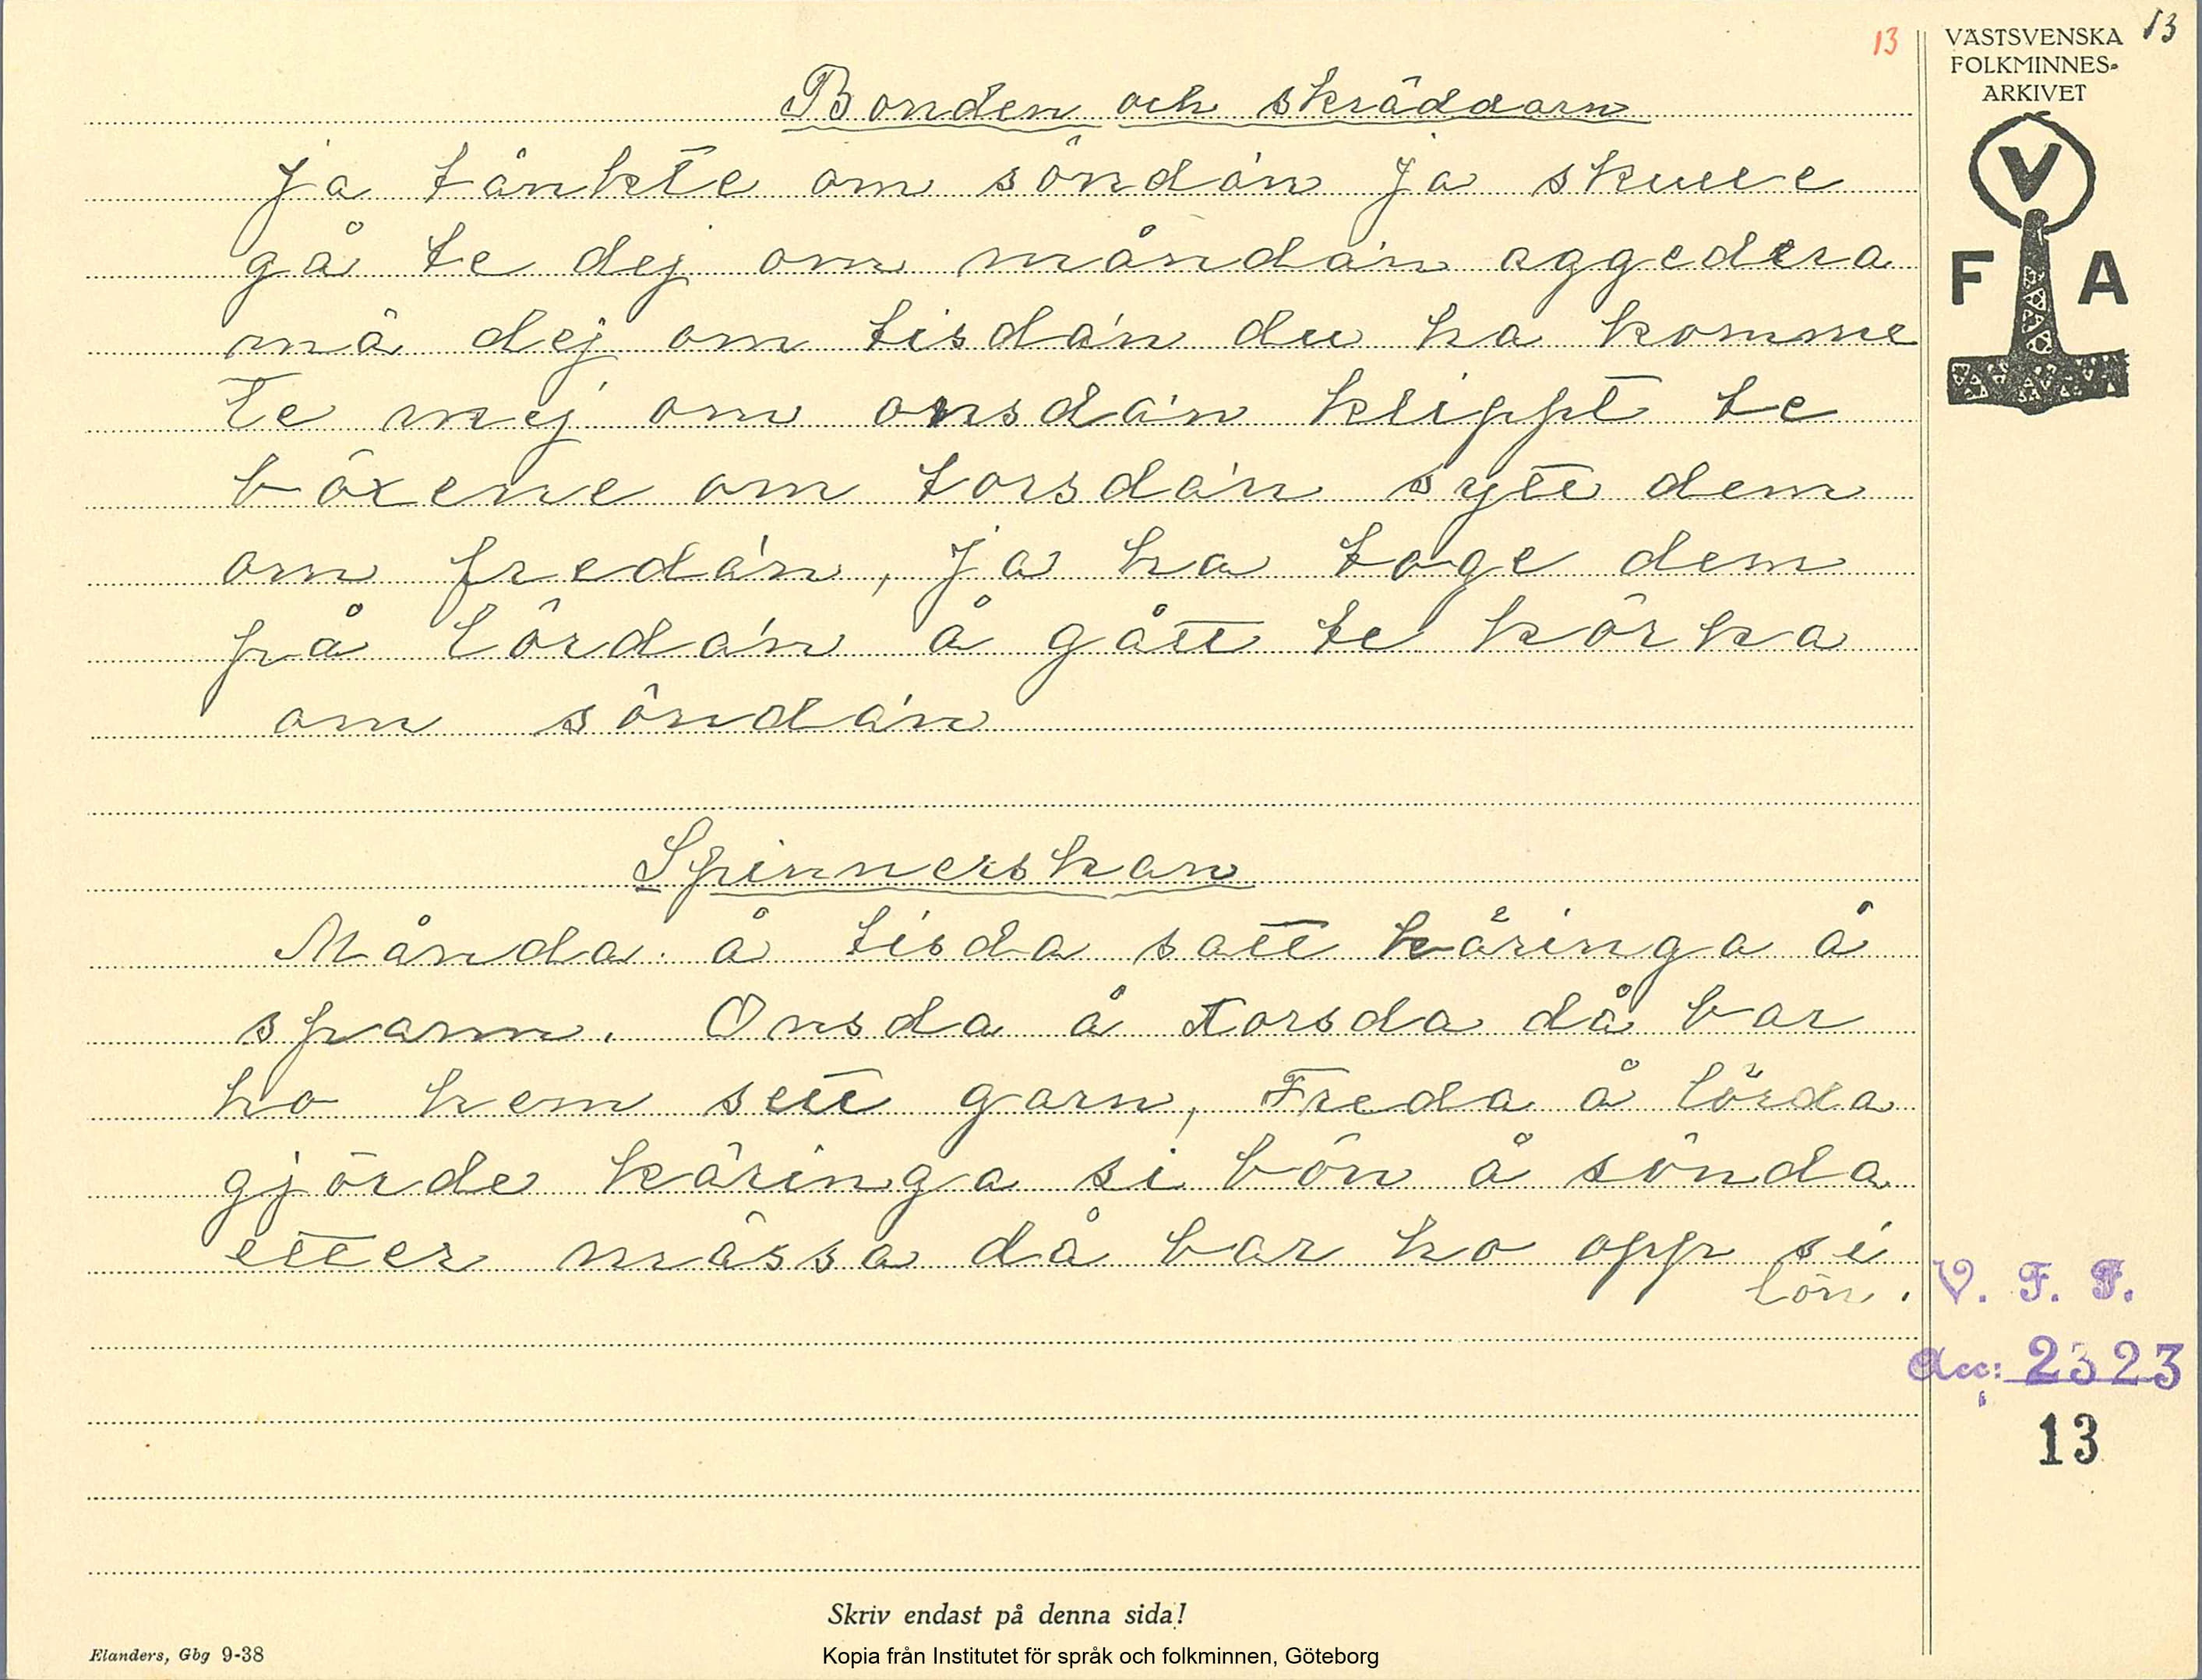 13
13
VÄSTSVENSKA
FOLKMINNES-
ARKIVET
V
F A
Bonden och skräddarn
Ja tänkte om söndán ja skulle
gå te dej om måndán aggedera
mä dej om tisdán du ha komme
te mej om onsdán klippt te
böxene om torsdán sytt dem
om fredán, ja ha toge dem
på lördán å gått te körka
om söndán
Spinnerskan
Månda å tisda satt käringa å
spann. Onsda å Torsda då bar
ho hem sett garn, Freda å lörda
gjörde käringa si bön å sönda
etter mässa då bar ho opp si
lön.
V. F. F.
Acc: 2323
13
Skriv endast på denna sida!
Elanders, Gbg 9-38
Kopia från Institutet för språk och folkminnen, Göteborg